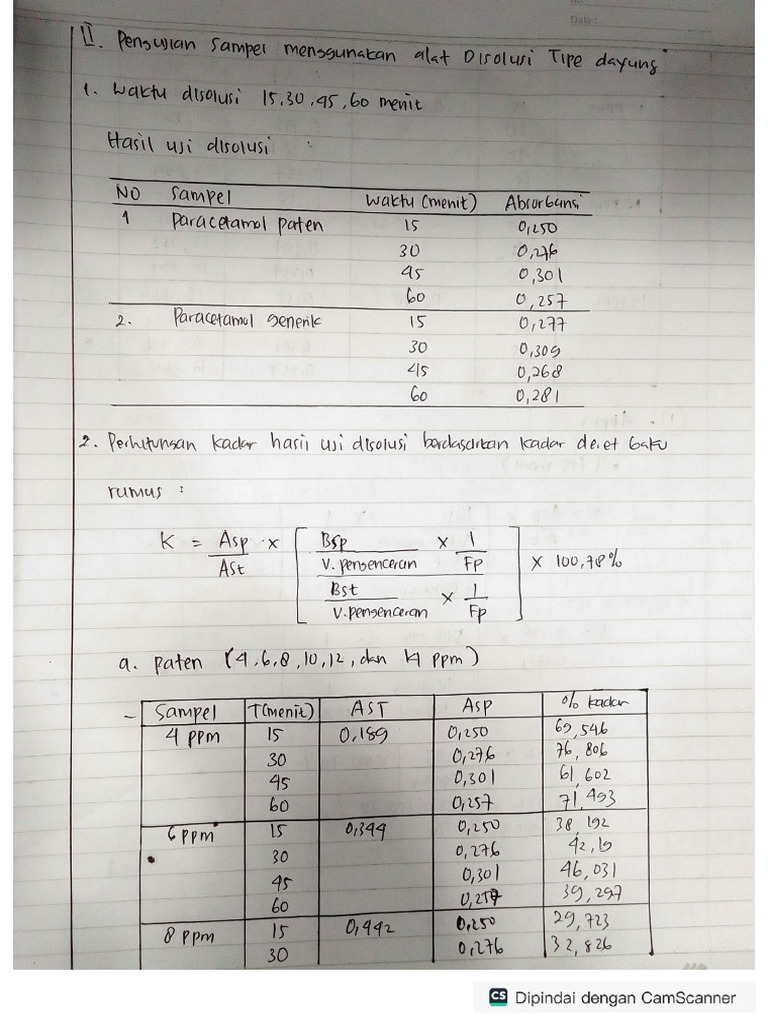 Date :
II. Pengujian Sampel menggunakan alat Disolusi Tipe dayung
1. Waktu disolusi 15,30,45,60 menit
Hasil uji disolusi :
NO Sampel Waktu (menit) Absorbansi
1 Paracetamol Paten 15 0,250
30 0,276
45 0,301
60 0,257
2. Paracetamol generik 15 0,277
30 0,309
45 0,268
60 0,281
2. Perhitungan kadar hasil uji disolusi berdasarkan kadar deret baku
rumus :
K = Asp / Ast x [ Bsp / V. pengenceran x 1 / Fp / Bst / V. pengenceran x 1 / Fp ] x 100,78%
a. paten (4,6,8,10,12, dan 14 ppm)
– Sampel T(menit) AST Asp % kadar
4 ppm 15 0,189 0,250 69,546
30 0,276 76,806
45 0,301 61,602
60 0,257 71,493
6 ppm 15 0,344 0,250 38,192
30 0,276 42,19
45 0,301 46,031
60 0,257 39,297
8 ppm 15 0,442 0,250 29,723
30 0,276 32,826
CS Dipindai dengan CamScanner